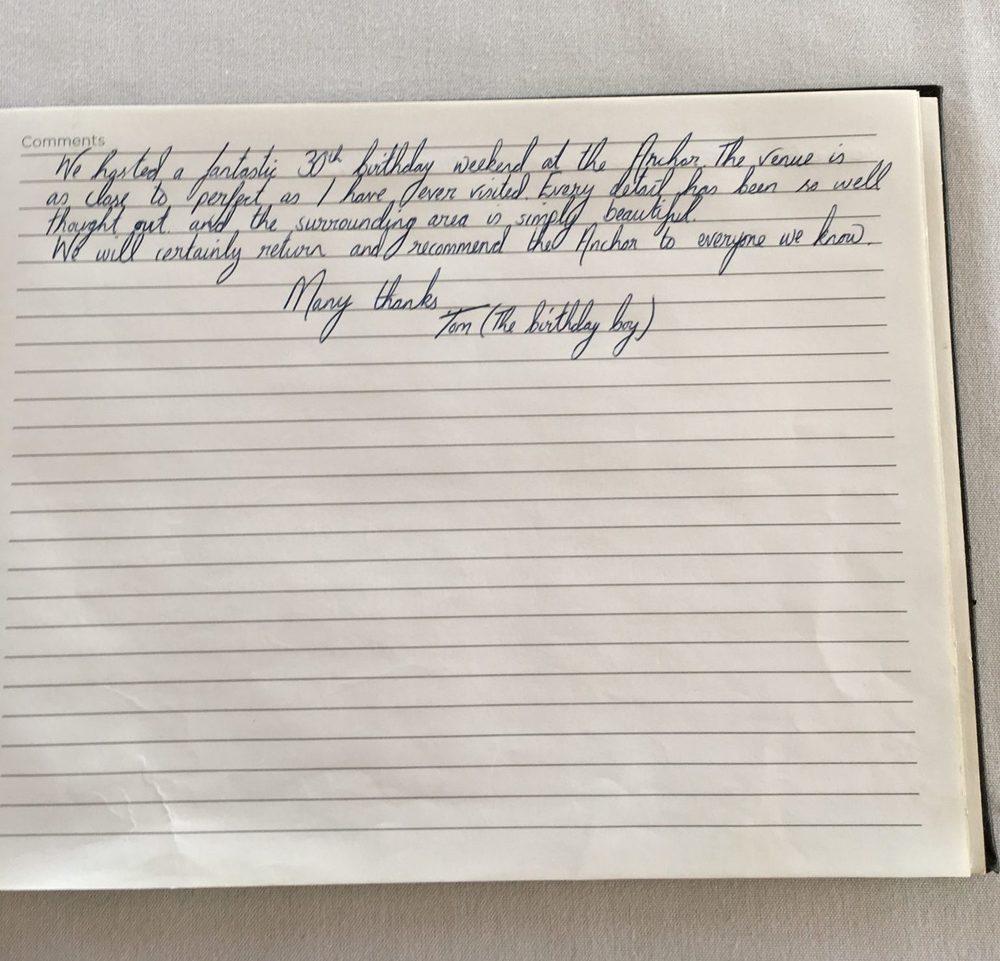 Comments
We hosted a fantastic 30th birthday weekend at the Anchor. The venue is
as close to perfect as I have ever visited. Every detail has been so well
thought out. and the surrounding area is simply beautiful.
We will certainly return and recommend the Anchor to everyone we know.
Many thanks
Tom (The birthday boy)